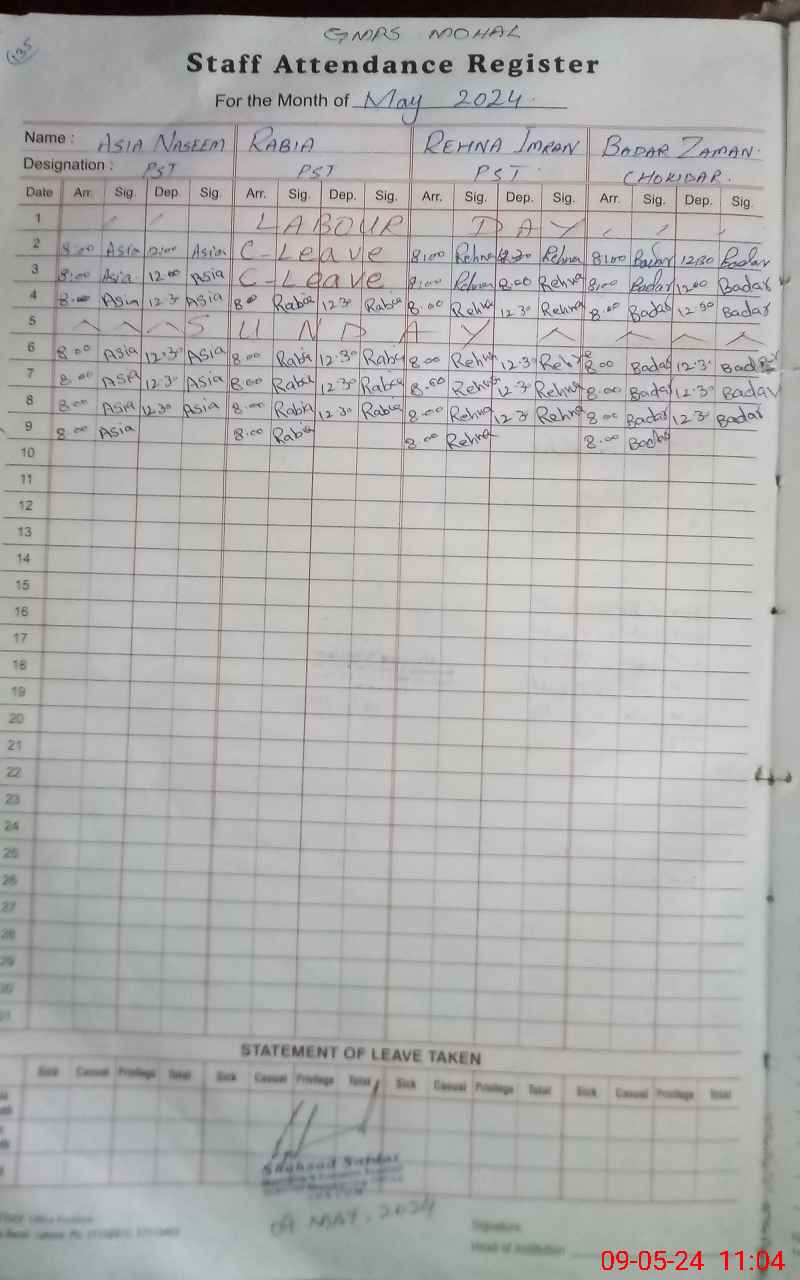 135
GMPS MOHAL
Staff Attendance Register
For the Month of May 2024.
Name : ASIA NASEEM RABIA REHNA IMRAN BADAR ZAMAN.
Designation : PST PST PST. CHOKIDAR.
Date Arr. Sig. Dep. Sig. Arr. Sig. Dep. Sig. Arr. Sig. Dep. Sig. Arr. Sig. Dep. Sig.
1 LABOUR DAY
2 8:00 Asia Asia C-Leave 8:00 Rehna Rehna 8:00 Badar 12:30 Badar
3 8:00 Asia 12:00 Asia C-Leave 8:00 Rehna Rehna 8:00 Badar 12:00 Badar
4 8:00 Asia 12:3 Asia 8:00 Rabia 12:30 Rabia 8:00 Rehna 12:30 Rehna 8:00 Badar 12:30 Badar
5 SUNDAY
6 8:00 Asia 12:30 Asia 8:00 Rabia 12:30 Rabia 8:00 Rehna 12:30 Rehna 8:00 Badar 12:3 Badar
7 8:00 Asia 12:3 Asia 8:00 Rabia 12:30 Rabia 8:00 Rehna 12:30 Rehna 8:00 Badar 12:30 Badar
8 8:00 Asia 12:30 Asia 8:00 Rabia 12:30 Rabia 8:00 Rehna 12:30 Rehna 8:00 Badar 12:3 Badar
9 8:00 Asia 8:00 Rabia 8:00 Rehna 8:00 Badar
10
11
12
13
14
15
16
17
18
19
20
21
22
23
24
25
26
27
28
29
30
31
STATEMENT OF LEAVE TAKEN
Sick Casual Privilege Total Sick Casual Privilege Total Sick Casual Privilege Total Sick Casual Privilege Total
09 MAY, 2024
Signature
Head of Institution
09-05-24 11:04